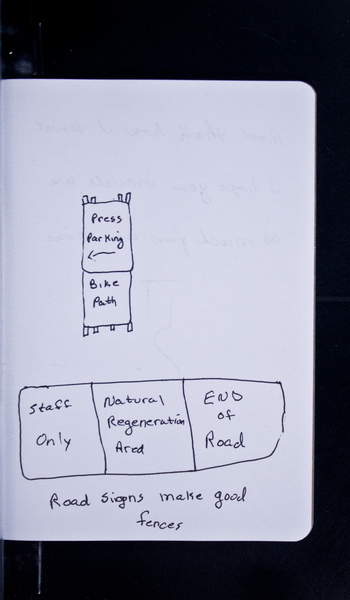 Press
Parking
Bike
Path
Staff
Only
Natural
Regeneration
Area
END
of
Road
Road signs make good
fences